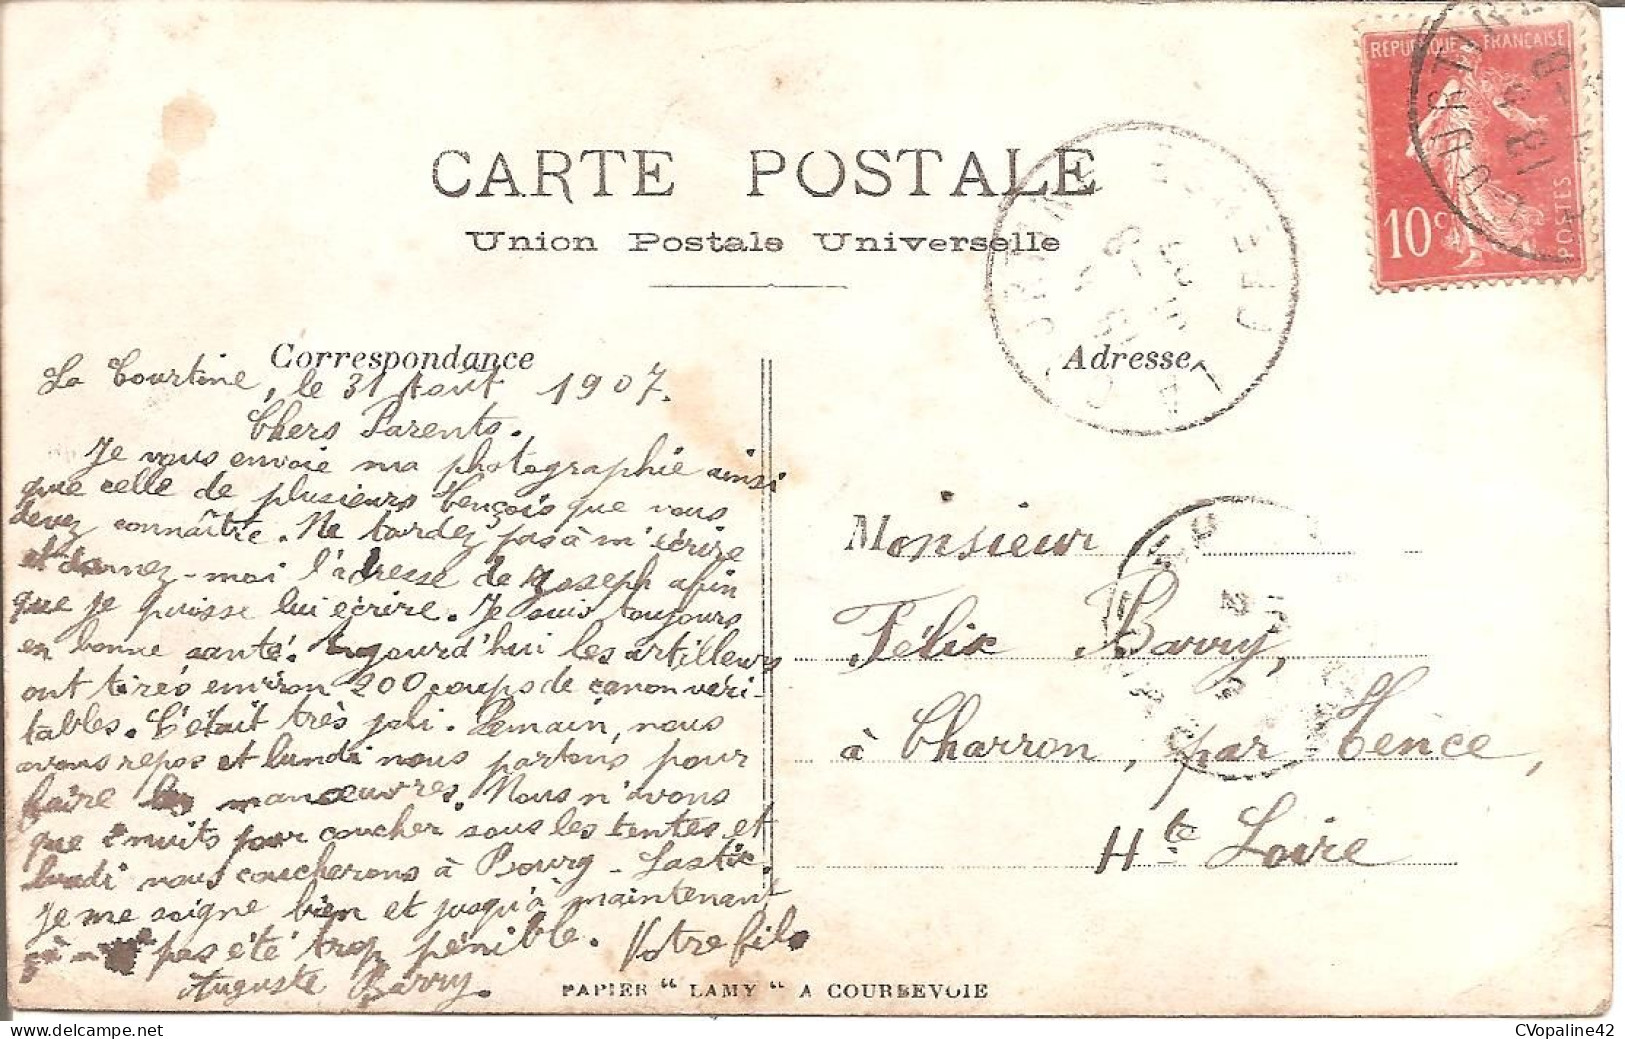 RÉPUBLIQUE FRANÇAISE
10c
POSTES
CARTE POSTALE
Union Postale Universelle
Correspondance
Adresse
La Courtine, le 31 Août 1907.
Chers Parents.
Je vous envoie ma photographie ainsi
que celle de plusieurs Tençois que vous
devez connaître. Ne tardez pas à m'écrire
et donnez-moi l'adresse de Joseph afin
que je puisse lui écrire. Je suis toujours
en bonne santé. aujourd'hui les artilleurs
ont tirés environ 200 coups de canon veri-
tables. C'était très joli. Demain, nous
avons repos et lundi nous partons pour
faire les manœuvres. Nous n'avons
que 2 nuits pour coucher sous les tentes et
lundi nous coucherons à Bourg-Lastic.
Je me soigne bien et jusqu'à maintenant
ça n'a pas été trop pénible. Votre fils
Auguste Barry.
Monsieur
Félix Barry,
à Charron, par Tence,
Hte Loire
PAPIER "LAMY" A COURBEVOIE
CVopaline42